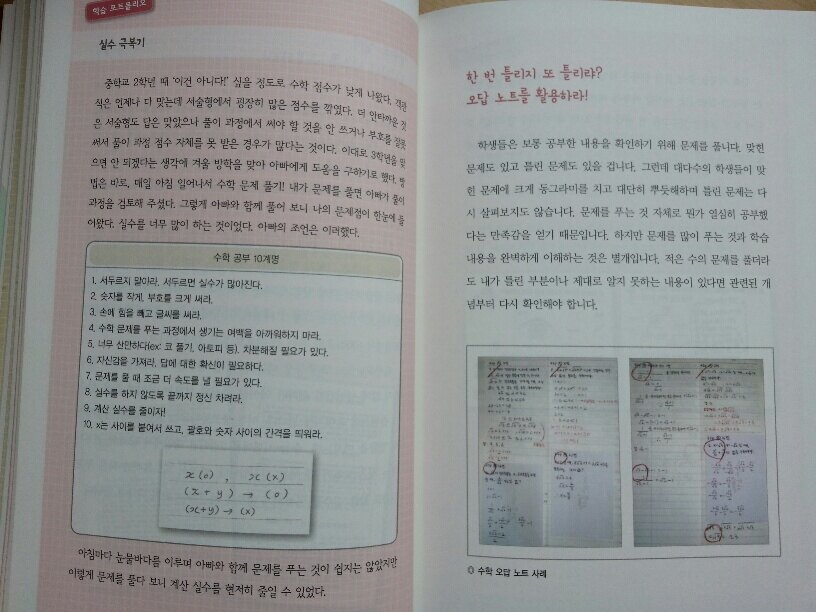 학습 포트폴리오
실수 극복기
중학교 2학년 때 '이건 아니다!' 싶을 정도로 수학 점수가 낮게 나왔다. 객관
식은 언제나 다 맞는데 서술형에서 굉장히 많은 점수를 깎였다. 더 안타까운 것
은 서술형도 답은 맞았으나 풀이 과정에서 써야 할 것을 안 쓰거나 부호를 잘못
써서 풀이 과정 점수 자체를 못 받은 경우가 많다는 것이다. 이대로 3학년을 맞
으면 안 되겠다는 생각에 겨울 방학을 맞아 아빠에게 도움을 구하기로 했다. 방
법은 바로, 매일 아침 일어나서 수학 문제 풀기! 내가 문제를 풀면 아빠가 풀이
과정을 검토해 주셨다. 그렇게 아빠와 함께 풀어 보니 나의 문제점이 한눈에 들
어왔다. 실수를 너무 많이 하는 것이었다. 아빠의 조언은 이러했다.
수학 공부 10계명
1. 서두르지 말아라. 서두르면 실수가 많아진다.
2. 숫자를 작게, 부호를 크게 써라.
3. 손에 힘을 빼고 글씨를 써라.
4. 수학 문제를 푸는 과정에서 생기는 여백을 아까워하지 마라.
5. 너무 산만하다(ex: 코 풀기, 아토피 등). 차분해질 필요가 있다.
6. 자신감을 가져라. 답에 대한 확신이 필요하다.
7. 문제를 풀 때 조금 더 속도를 낼 필요가 있다.
8. 실수를 하지 않도록 끝까지 정신 차려라.
9. 계산 실수를 줄이자!
10. x는 사이를 붙여서 쓰고, 괄호와 숫자 사이의 간격을 띄워라.
x(o), x(x)
(x + y) → (o)
(x+y) → (x)
아침마다 눈물바다를 이루며 아빠와 함께 문제를 푸는 것이 쉽지는 않았지만
이렇게 문제를 풀다 보니 계산 실수를 현저히 줄일 수 있었다.
한 번 틀리지 또 틀리랴?
오답 노트를 활용하라!
학생들은 보통 공부한 내용을 확인하기 위해 문제를 풉니다. 맞힌
문제도 있고 틀린 문제도 있을 겁니다. 그런데 대다수의 학생들이 맞
힌 문제에 크게 동그라미를 치고 대단히 뿌듯해하며 틀린 문제는 다
시 살펴보지도 않습니다. 문제를 푸는 것 자체로 뭔가 열심히 공부했
다는 만족감을 얻기 때문입니다. 하지만 문제를 많이 푸는 것과 학습
내용을 완벽하게 이해하는 것은 별개입니다. 적은 수의 문제를 풀더라
도 내가 틀린 부분이나 제대로 알지 못하는 내용이 있다면 관련된 개
념부터 다시 확인해야 합니다.
수학 오답 노트 사례